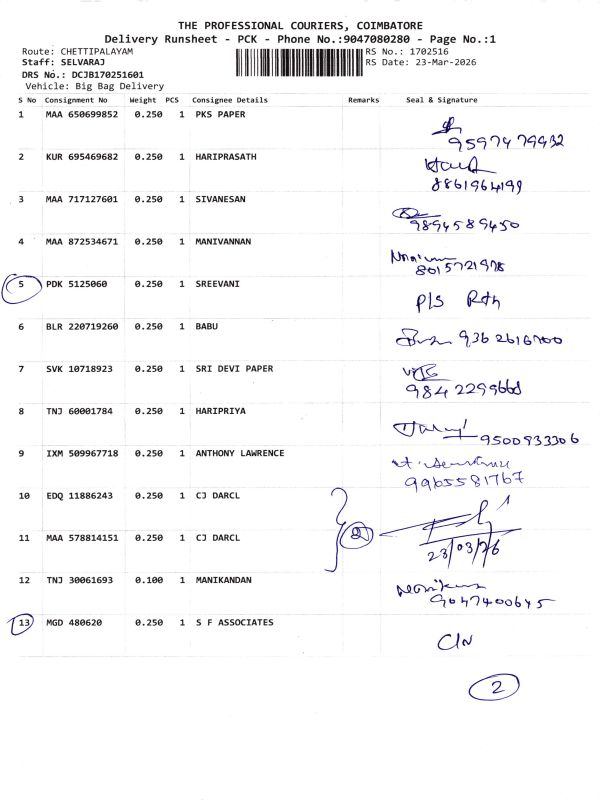 THE PROFESSIONAL COURIERS, COIMBATORE
Delivery Runsheet - PCK - Phone No.:9047080280 - Page No.:1
Route: CHETTIPALAYAM RS No.: 1702516
Staff: SELVARAJ RS Date: 23-Mar-2026
DRS No.: DCJB170251601
Vehicle: Big Bag Delivery
S No Consignment No Weight PCS Consignee Details Remarks Seal & Signature
1 MAA 650699852 0.250 1 PKS PAPER
9597479932
2 KUR 695469682 0.250 1 HARIPRASATH
8861964199
3 MAA 717127601 0.250 1 SIVANESAN
9894589450
4 MAA 872534671 0.250 1 MANIVANNAN
8015721978
5 PDK 5125060 0.250 1 SREEVANI
P/S Rth
6 BLR 220719260 0.250 1 BABU
9362616700
7 SVK 10718923 0.250 1 SRI DEVI PAPER
9842299668
8 TNJ 60001784 0.250 1 HARIPRIYA
9500933306
9 IXM 509967718 0.250 1 ANTHONY LAWRENCE
9965581767
10 EDQ 11886243 0.250 1 CJ DARCL
11 MAA 578814151 0.250 1 CJ DARCL
2
23/03/26
12 TNJ 30061693 0.100 1 MANIKANDAN
9047400645
13 MGD 480620 0.250 1 S F ASSOCIATES
C/N
2